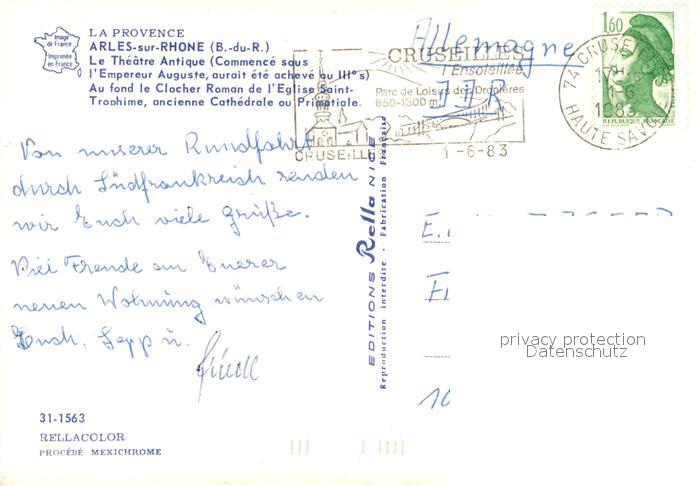 Image
de France
Imprimée
en France
LA PROVENCE
ARLES-sur-RHONE (B.-du-R.)
Le Théâtre Antique (Commencé sous
l'Empereur Auguste, aurait été achevé au IIIe s)
Au fond le Clocher Roman de l'Eglise Saint-
Trophime, ancienne Cathédrale ou Primatiale.
Allemagne
CRUSEILLES
l'Ensoleillée
Parc de Loisirs des Dronières
850-1300 m.
CRUSEILLES
1-6-83
74 CRUSEILLES
1-6
1983
HAUTE SAVOIE
1,60
REPUBLIQUE FRANÇAISE
Von unserer Rundfahrt
durch Südfrankreich senden
wir Euch viele Grüße.
Viel Freude an Eurer
neuen Wohnung wünschen
Euch, Sepp u.
EDITIONS Rella NICE
Reproduction interdite - Fabrication Française
E.
10
privacy protection
Datenschutz
31-1563
RELLACOLOR
PROCÉDÉ MEXICHROME